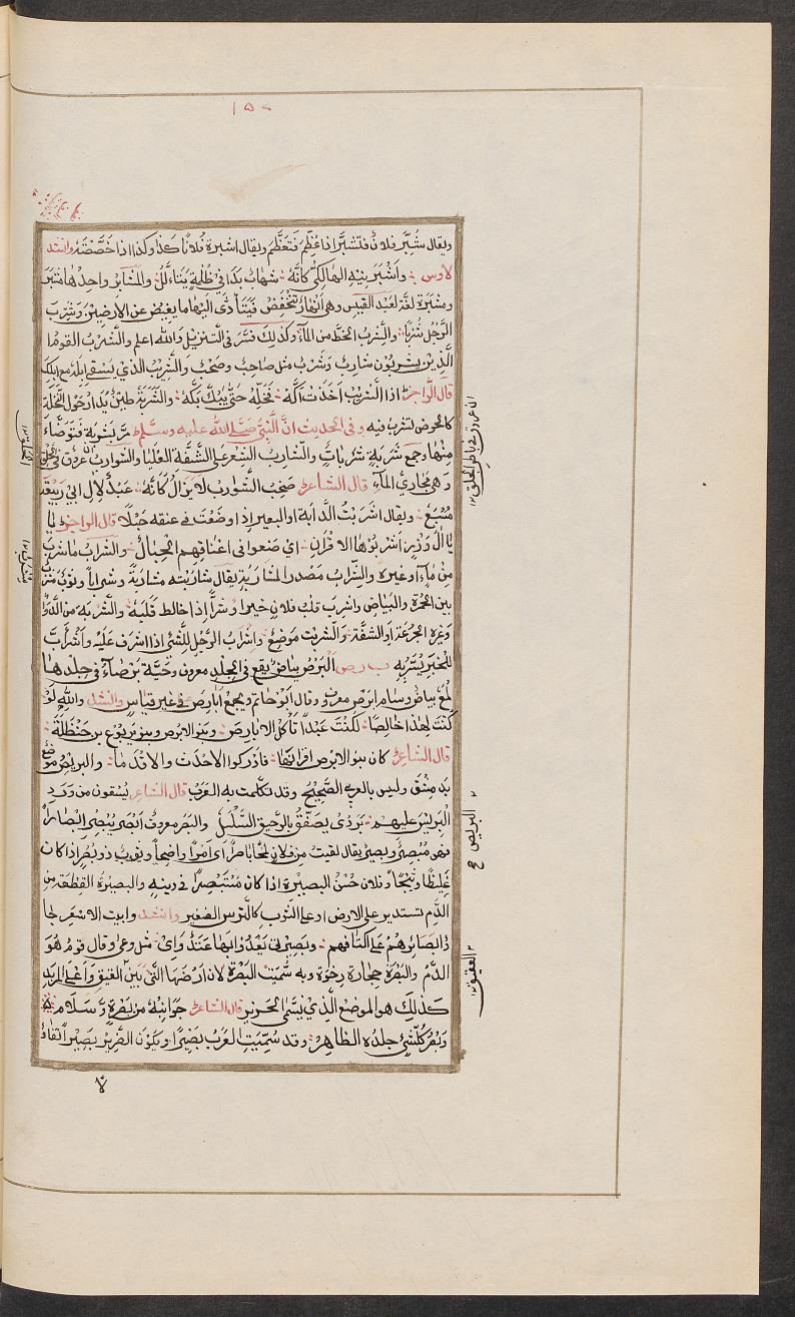 ١٥٠
ويقال شُبِّرَ فلانٌ فتشبَّر اذا عُظِّمَ فَتَعَظَّمَ ويقال اشبرة فُلانًا كذا وكذا اذا خَصَّصْتَهُ وانشد
لاوس وأشْبَرَنيهِ الهالكيّ كَانَّهُ شهابٌ بَدَا في ظُلمةٍ يَتَلَألَلُ والمشابِرُ واحدُهَا مَشْبَر
ومَشْبَرَة لغة لعبد القيس وهي انهارٌ تنخفِضُ فيتأدى اليها ما يفيض عن الارضين وَشَرِبَ
الرَّجُل شُرْبًا والشِّربُ الحظّ من المآء وكذلِكَ فسَّر في التنزيل وَاللّه اعلم والشَّرْبُ القوم
الَّذِين يشربُون شاربٌ وشَرْبٌ مثل صاحبٌ وصَحْبٌ والشَّرِيْبُ الذي يَسْقي ابلَهُ مع ابلك
قال الراجز اذا الشَّريْبُ اَخَذَتْهُ اَكَّهْ فَخَلِّه حَتّى يَبُكَّ بَكَّهْ والشَّرَبَةُ طينٌ يُدَارُ حَوْلَ النَّخلَةِ
كالحوض لتشرب فيه وفي الحديث انَّ النَّبيّ صَلَّے اللّه عليه وسلم مرَّ بشَرَبةٍ فَتَوَضَّاءَ
مِنْهَا وجمع شَرَبَةٍ شَرَباتٌ والشّارب الشعر على الشَّفَة العُليَا والشوارب عُروق في الحلق
وهي مجاريُ المآء قال الشاعر صَخِبُ الشَّوارِب لا يزالُ كَانَّهُ عبدٌ لِاٰلِ ابي رَبيعَةَ
مُسْبَعُ ويقال اشرَبْتُ الدّابَة او البعير اذا وضَعْتَ في عنقه حَبْلًا قال الراجز
يا اٰلَ وَزِيْرٍ اَشْرِبُوهَا الاقْرَانْ اي ضعوا في اعْناقِهم الحِبالَ والشَّرابُ ما شُرِبَ
من مآءٍ او غيرة والشِّرابُ مصدر المشارَبة يقال شاربته مشاربَةً وشرابًا وثوبٌ مُشْرَبٌ
بين الحمرة والبياض واشرب قلبُ فلانٍ خيرا او شرًّا اذا خالط قَلْبَهُ والشَّرْبَة من الدَّواء
وغيرة الجرعة او الشفّة والشربت مَوضِعٌ واشرابَّ الرَّجُل للشَّئِ اذا اشرف عَلَيْه
ب ر ص البَرَصُ بياضٌ يَقَع في الجِلْد معروف وحَيَّة بَرصَاءُ في جلدِ هَا
لُمَعُ بياضٍ وسامِ ابرَصَ معروف وقال اَبُو حاتم ويجمع اَبَارصَ على غير قياس وانشد واللّهِ لَوْ
كُنْتُ لِهٰذا خَالِصًا لَكُنْتُ عَبْدًا تاكل الابارِصَ وبنو الابرَص وبنو يَربُوعِ بن حَنْظَلَةَ
قال الشاعر كان بنو الابرَص اقرانَهَا فادركوا الاحْدَثَ والاقْدَمَا والبريصُ موضع
بدِمَشْقَ وليس بالعربي الصَّحِيْحِ وقد تكلمت به العَرَبُ قال الشاعر يَسْقون من وَرَدَ
البَرِيْصَ عليهم بَرَدَى يُصَفَّقُ بالرَّحيقِ السَّلْسَلِ والبَصَر معروف اَبْصَر يُبْصِر ابْصَارًا
فهو مُبْصِر وبَصيرٌ يقال لقيت من فلانٍ لمحًا باصِرًا اي امرًا واضحًا وثوبٌ ذو بُصْر اذا كان
غليظًا وفلان حَسَنُ البصيرة اذا كان مُسْتَبْصِرًا في دينه والبصيرة القطعة من
الدَّم تستدير على الارض او على الثوب كالترس الصغير وانشد وابيت الاسْعر الجا
بَصَائِرُهُمْ على اكتافهم وبَصيرَتي يَعْدُو ابها عَتَدٌ وَاٰى مثل وعى وقال قوم هُوَ
الدَّمُ والبَصْرة حجارة رِخْوَة وبه سُمّيت البَصْرَة لان ارْضَها الَّتِي بين العَقيق وَاَعْلى المِرْبَدِ
كذلِك هو الموضع الّذي يسَمّى الحَزِيْز قال الشاعر جَوَانِبُهُ من بَصْرَةٍ وَّسَلَامِ
وبُصْرُ كلّ شئ جِلدُه الظاهِرُ وقد سُمِّيَتِ العَرَبُ بَصِيْرًا ويكون الضَّرِيْرُ بَصِيْرًا
البريص
العقيق